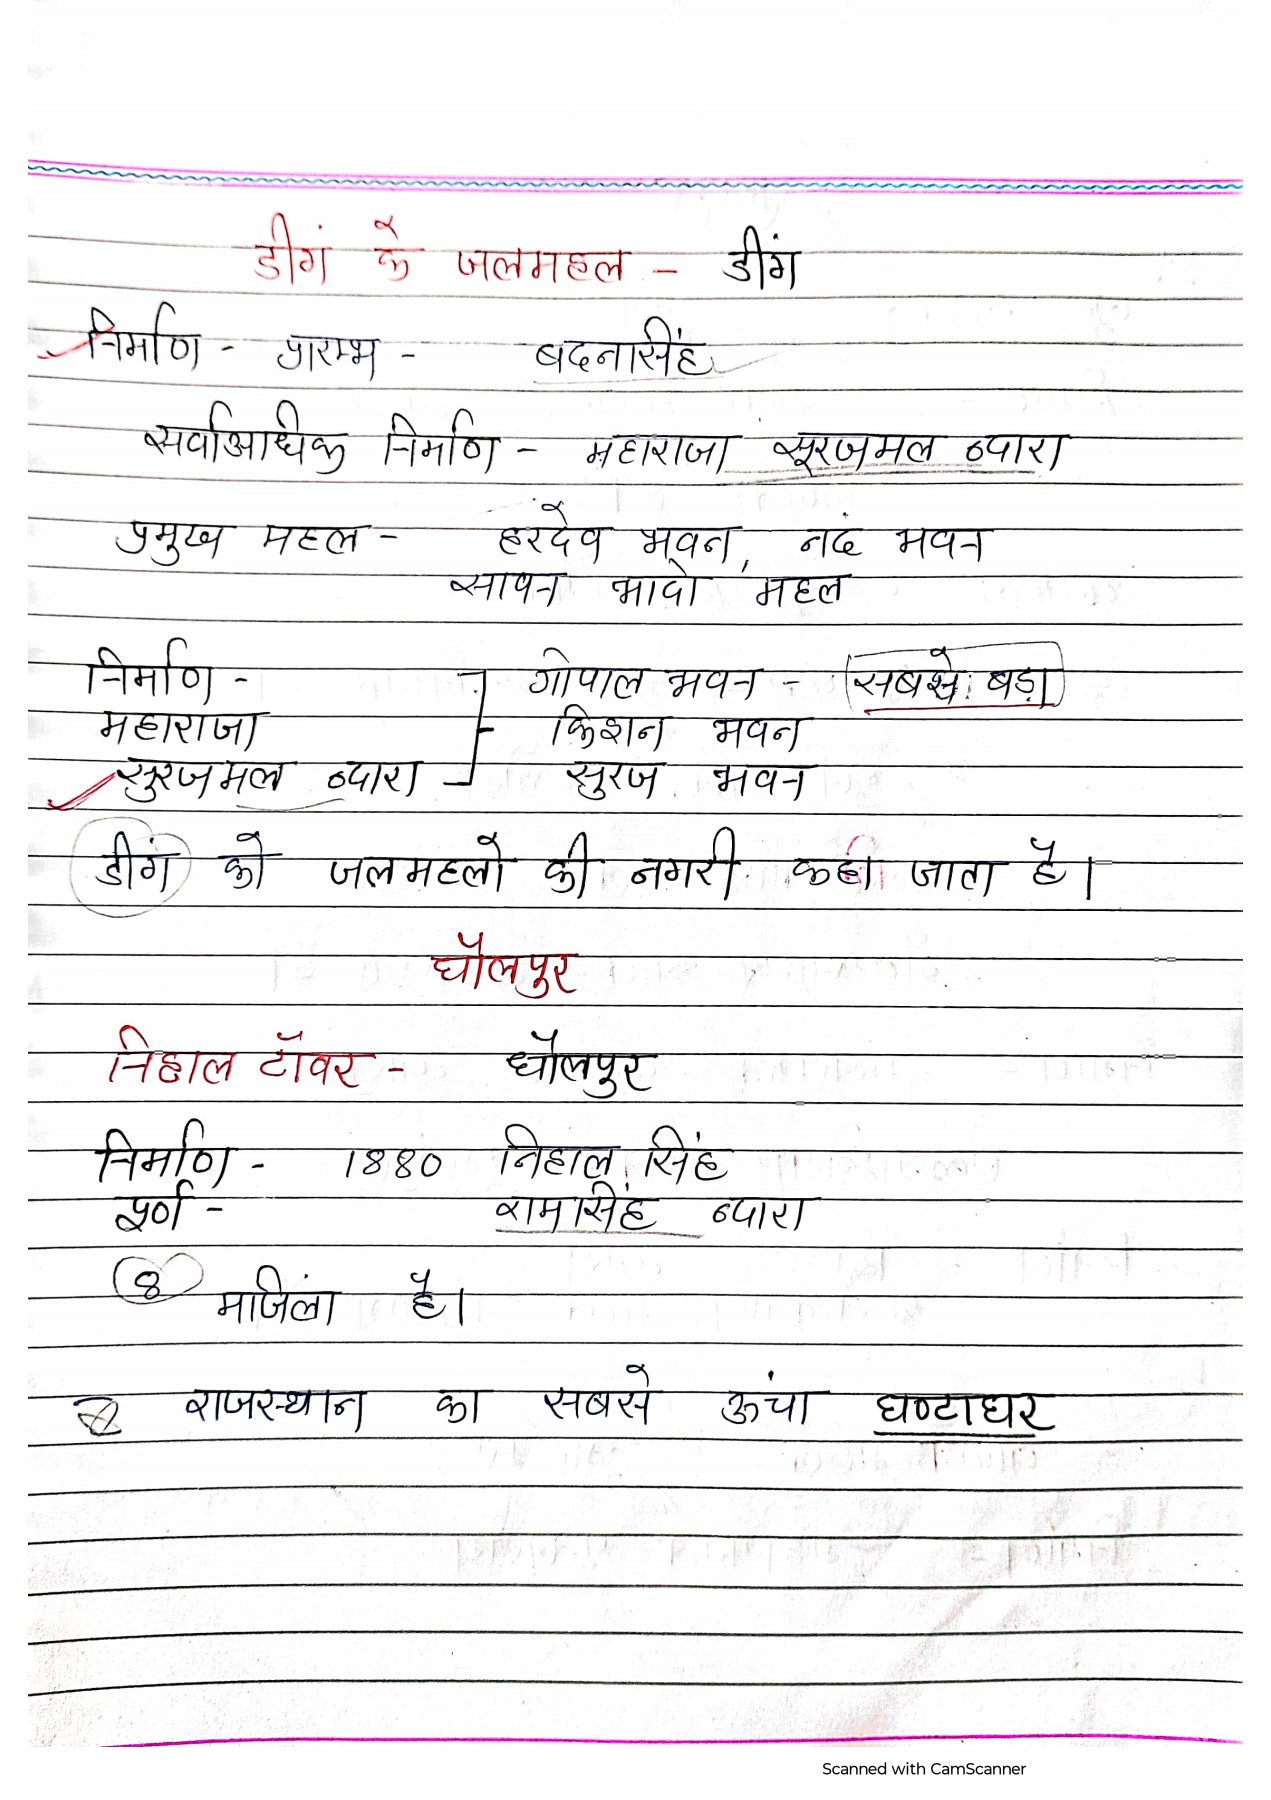 डीगं के जलमहल - डींग
निर्माण - प्रारम्भ - बदनासिंह
सर्वाआधिक निर्माण - महाराजा सूरजमल व्दारा
प्रमुख महल - हरदेव भवन, नदं भवन
सावन भादो महल
निर्माण - गोपाल भवन - सबसे बड़ा
महाराजा किशन भवन
सुरजमल व्दारा सुरज भवन
डीगं को जलमहलो की नगरी कहा जाता है।
धौलपुर
निहाल टॉवर - धौलपुर
निर्माण - 1880 निहाल सिंह
पूर्ण - रामासिंह व्दारा
8 माजिंला है।
राजस्थान का सबसे ऊंचा घण्टाघर
Scanned with CamScanner